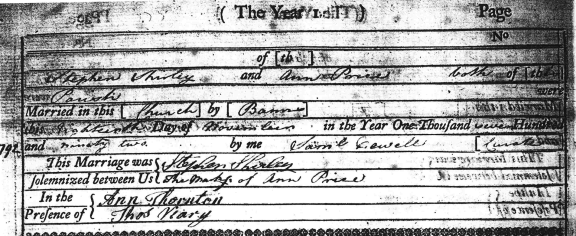 ( The Year ) Page
No
of [this]
Stephen Shirley and Ann Price both of [this]
Parish were
Married in this [Church] by [Banns]
this Day of November in the Year One Thousand seven Hundred
and ninety two by me Saml Cowell [Curate
This Marriage was { Stephen Shirley
solemnized between Us { The mark of Ann Price
In the { Ann Thornton
Presence of { Thos Viary